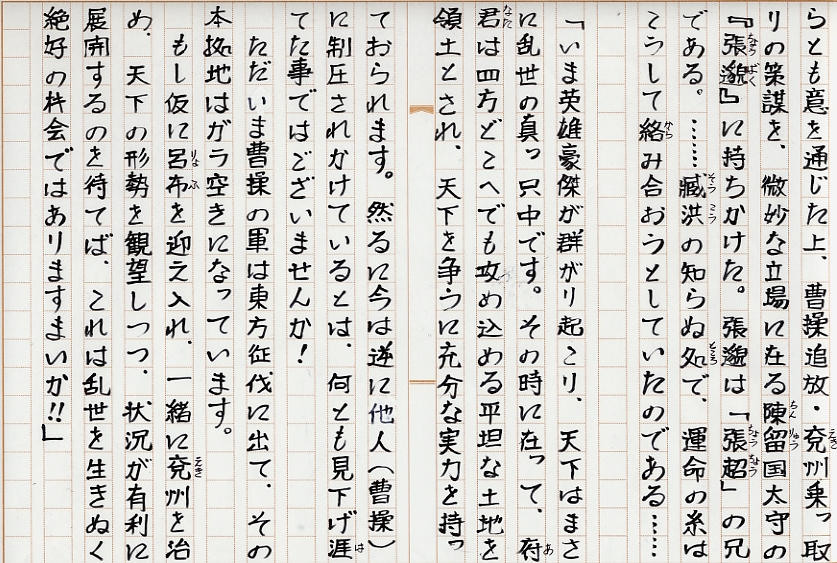 らとも意を通じた上、曹操追放・兗州乗っ取
りの策謀を、微妙な立場に在る陳留国太守の
『張邈』に持ちかけた。張邈は「張超」の兄
である。……臧洪の知らぬ処で、運命の糸は
こうして絡み合おうとしていたのである……
「いま英雄豪傑が群がり起こり、天下はまさ
に乱世の真っ只中です。その時に在って、府
君は四方どこへでも攻め込める平坦な土地を
領土とされ、天下を争うに充分な実力を持っ
ておられます。然るに今は逆に他人(曹操)
に制圧されかけているとは、何とも見下げ涯
てた事ではございませんか!
ただいま曹操の軍は東方征伐に出て、その
本拠地はガラ空きになっています。
もし仮に呂布を迎え入れ、一緒に兗州を治
め、天下の形勢を観望しつつ、状況が有利に
展開するのを待てば、これは乱世を生きぬく
絶好の杵会ではありますまいか!!」